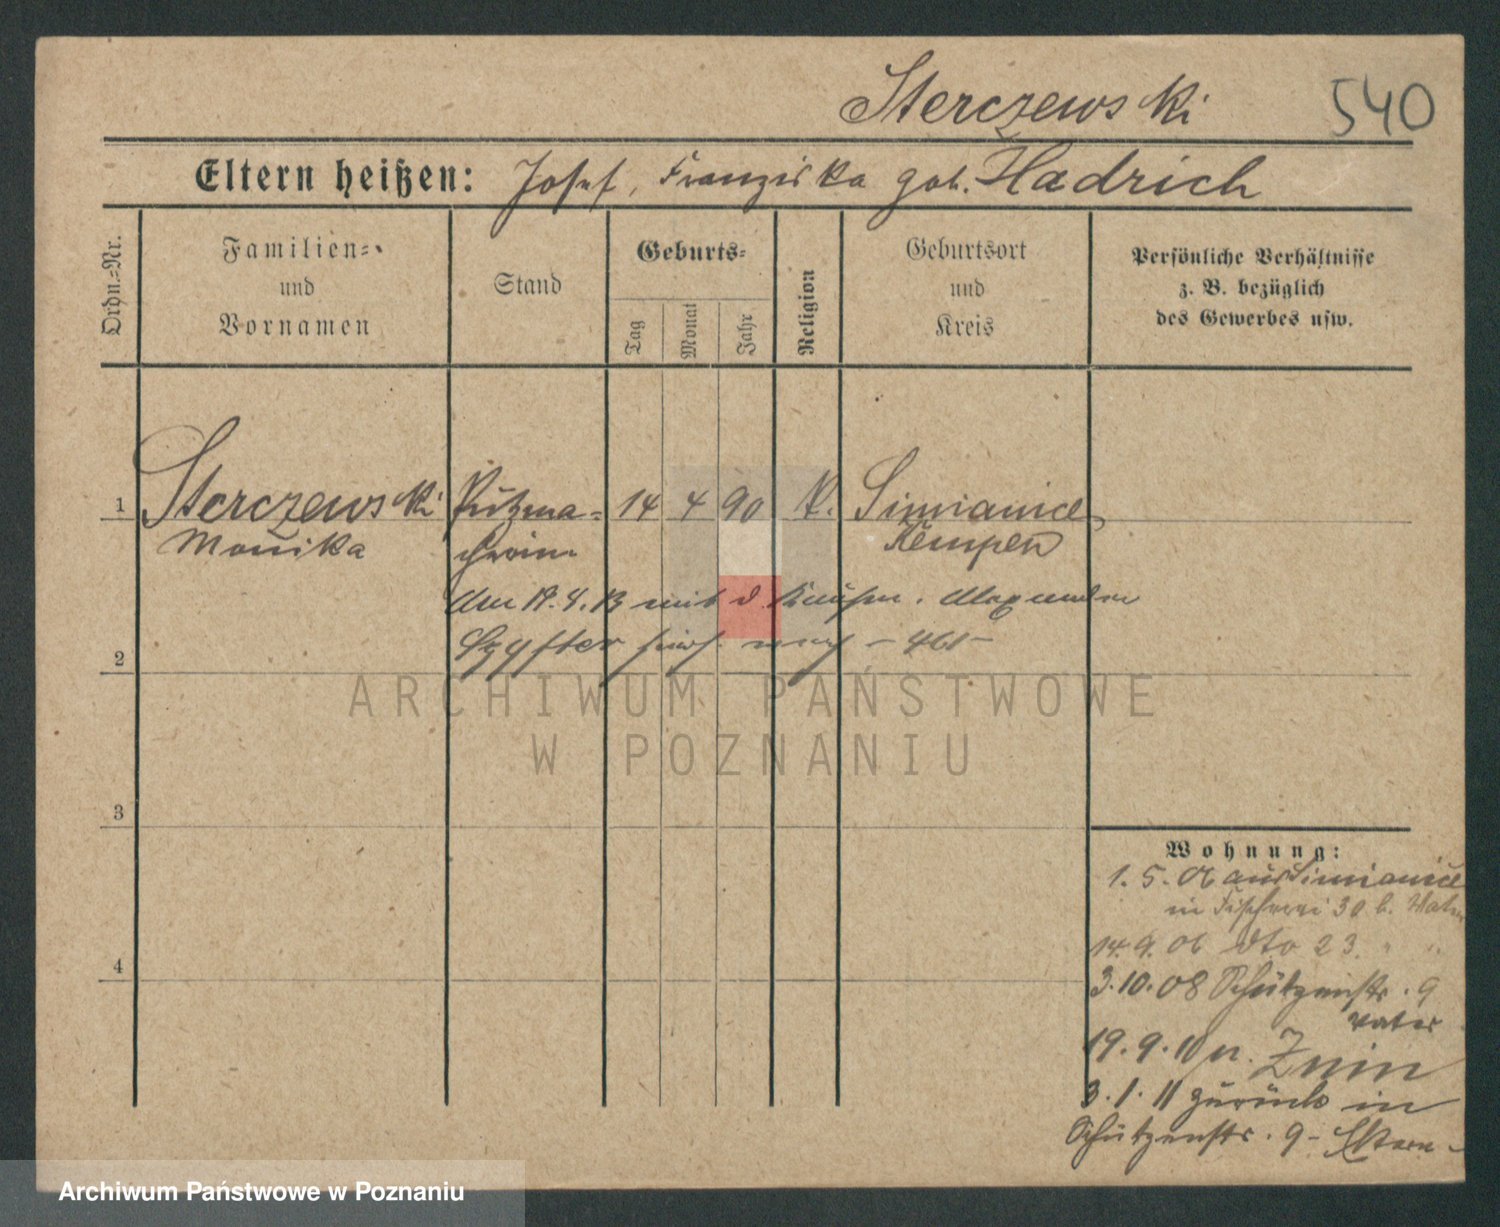 Sterczewski 540
Eltern heißen: Josef, Franziska geb. Hadrich
Ordn.=Nr.
Familien=
und
Vornamen
Stand
Geburts=
Tag
Monat
Jahr
Religion
Geburtsort
und
Kreis
Persönliche Verhältnisse
z. B. bezüglich
des Gewerbes usw.
1 Sterczewski Putzma= 14 4 90 K. Simianice
Monika cherin Kempen
Am 4. 13 mit d. Kaufm. Alexander
2 nach - 461 -
ARCHIWUM PAŃSTWOWE
W POZNANIU
3
Wohnung:
1. 5. 06 aus Simianice
in Fischerei 30 b. Vater
4
14. 9. 06 dto 23. " "
3. 10. 08 Schützenstr. 9
Vater
19. 9. 10 n. Znin
3. 1. 11 zurück in
Schützenstr. 9 - Eltern -
Archiwum Państwowe w Poznaniu